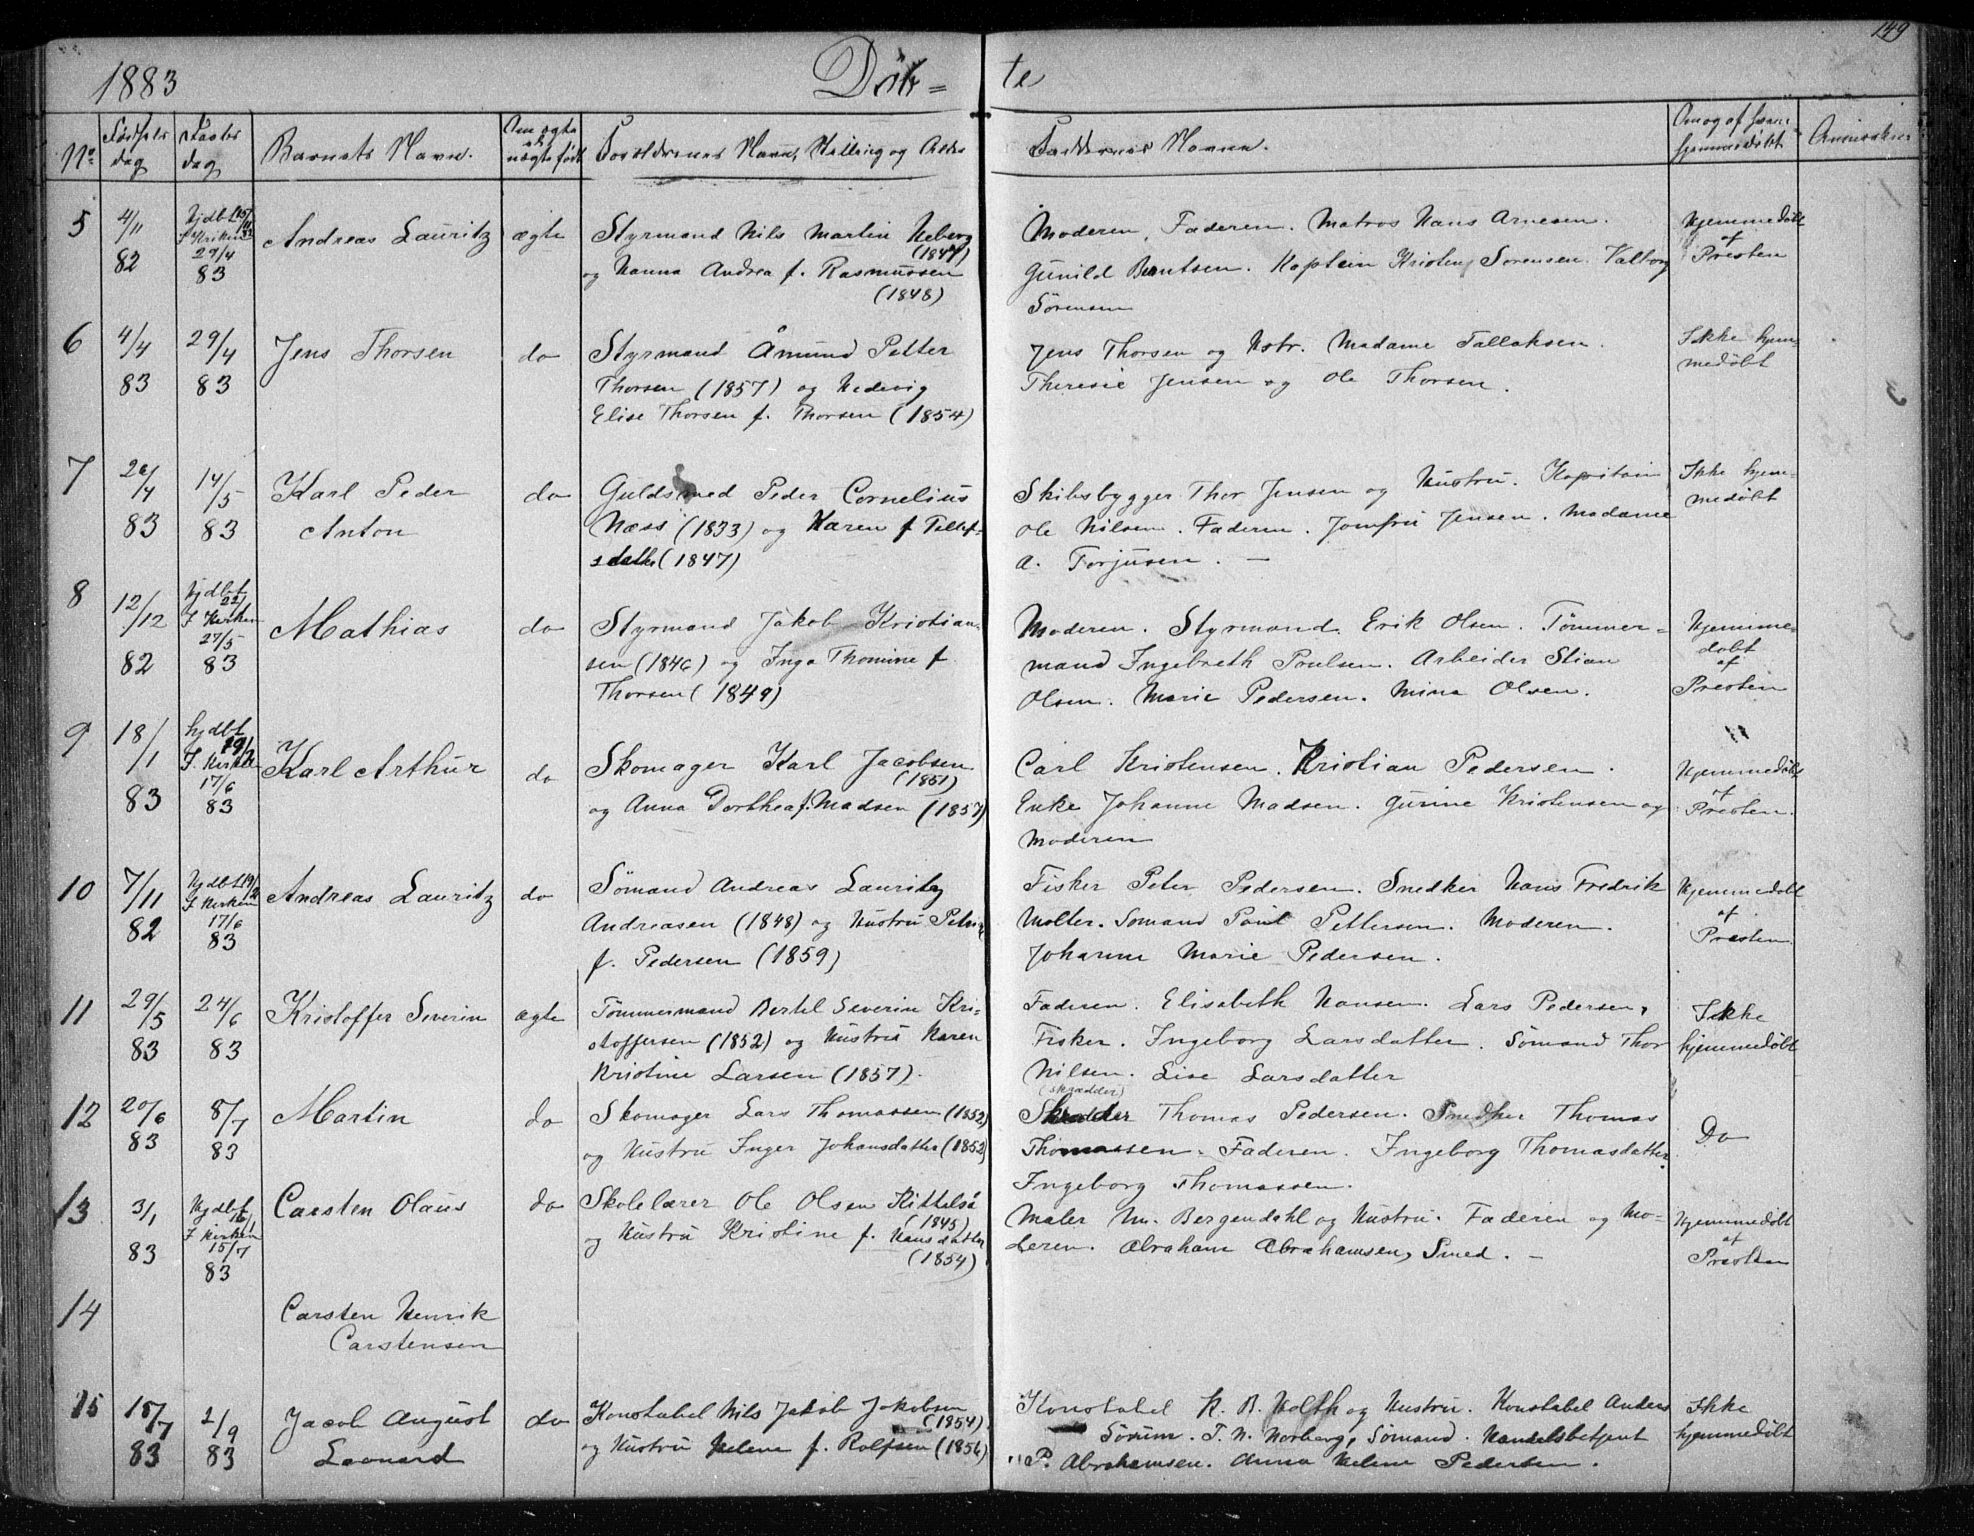 149
1883 Døb= te
No Fødsels dag Daabs dag Barnets Navn. Om ægte el. uægte født Forældrenes Navn, Stilling og Alder Faddernes Navne. Om og af hvem hjemmedøbt
5 4/11 82 Hjdbt 15/11 82 I Kirken 29/4 83 Andreas Lauritz ægte Styrmand Nils Martin Heberg (1847)
og Hanna Andrea f. Rasmussen (1848)
Moderen, Faderen. Matros Hans Arnesen.
Gunild Berntsen. Kaptein Kristen Sørensen. Valborg
Sørensen
Hjemmedøbt af Presten
6 4/4 83 29/4 83 Jens Thorsen do Styrmand Åmund Petter
Thorsen (1857) og Hedevig
Elise Thorsen f. Thorsen (1854)
Jens Thorsen og Hstr. Madame Tallaksen.
Theresie Jensen og Ole Thorsen.
Ikke hjem-
medøbt
7 83 14/5 83 Karl Peder
Anton
do Guldsmed Peder Cornelius
Næss (1833) og Karen f Tellef-
sdatter (1847)
Skibsbygger Thor Jensen og Hustru. Kapitain
Ole Nilsen. Faderen. Jomfru Jensen. Madame
A. Torjusen. —
Ikke hjem-
medøbt
8 12/12 82 Hjdbt I Kirken 27/5 83 Mathias do Styrmand Jakob Kristian-
sen (1846) og Inga Thomine f.
Thorsen (1849)
Moderen. Styrmand. Erik Olsen. Tømmer=
mand Ingebreth Poulsen. Arbeider Stian
Olsen. Marie Pedersen. Mina Olsen.
Hjemme-
døbt
af
Presten
9 18/1 83 hjdbt 19/2 I Kirken 17/6 83 Karl Arthur do Skomager Karl Jacobsen (1851)
og Anna Dorthea f. Madsen (1857)
Carl Kristensen. Kristian Pedersen.
Enke Johanne Madsen. Gurine Kristensen og
Moderen
Hjemmedøbt
af
Presten.
10 7/11 82 Hjdbt 19/2 I Kirken 17/6 83 Andreas Lauritz do Sømand Andreas Lauritz
Andreasen (1848) og Hustru Petrine
f. Pedersen (1859)
Fisker Peter Pedersen. Snedker Hans Fredrik
Molter. Sømand Poul Pettersen. Moderen.
Johanne Marie Pedersen.
Hjemmedøbt
af
Presten
11 29/5 83 24/6 83 Kristoffer Severin ægte Tømmermand Bertel Severin Kri-
stoffersen (1852) og Hustru Karen
Kristine Larsen (1857).
Faderen. Elisabeth Hansen. Lars Pedersen,
Fisker. Ingeborg Larsdatter. Sømand Thor
Nilsen. Lise Larsdatter
Ikke
hjemmedøbt
12 20/6 83 8/7 83 Martin do Skomager Lars Thomassen (1852)
og Hustru Inger Johansdatter (1852)
(skrædder)
Skredder Thomas Pedersen. Snedker Thomas
Thomassen. Faderen. Ingeborg Thomasdatter.
Ingeborg Thomassen.
Do
13 3/1 83 Hjdbt 16/1 I Kirken 15/7 83 Carsten Olaus do Skolelærer Ole Olsen Kittelsø (1845)
og Hustru Kristine f. Hansdatter (1854)
Maler M. Bergendahl og Hustru. Faderen og Mo-
deren. Abraham Abrahamsen, Smed. —
Hjemmedøbt
af
Presten
14 Carsten Henrik
Carstensen
15 15/7 83 2/9 83 Jacob August
Leonard
do Konstabel Nils Jakob Jakobsen (1854)
og Hustru Helene f. Rolfsen (1856)
Konstabel K. B. Holth og Hustru. Konstabel Anders
Sørum. T. N. Norberg, Sømand. Handelsbetjent
P. Abrahamsen. Anna Helene Pedersen.
Ikke
hjemmedøbt